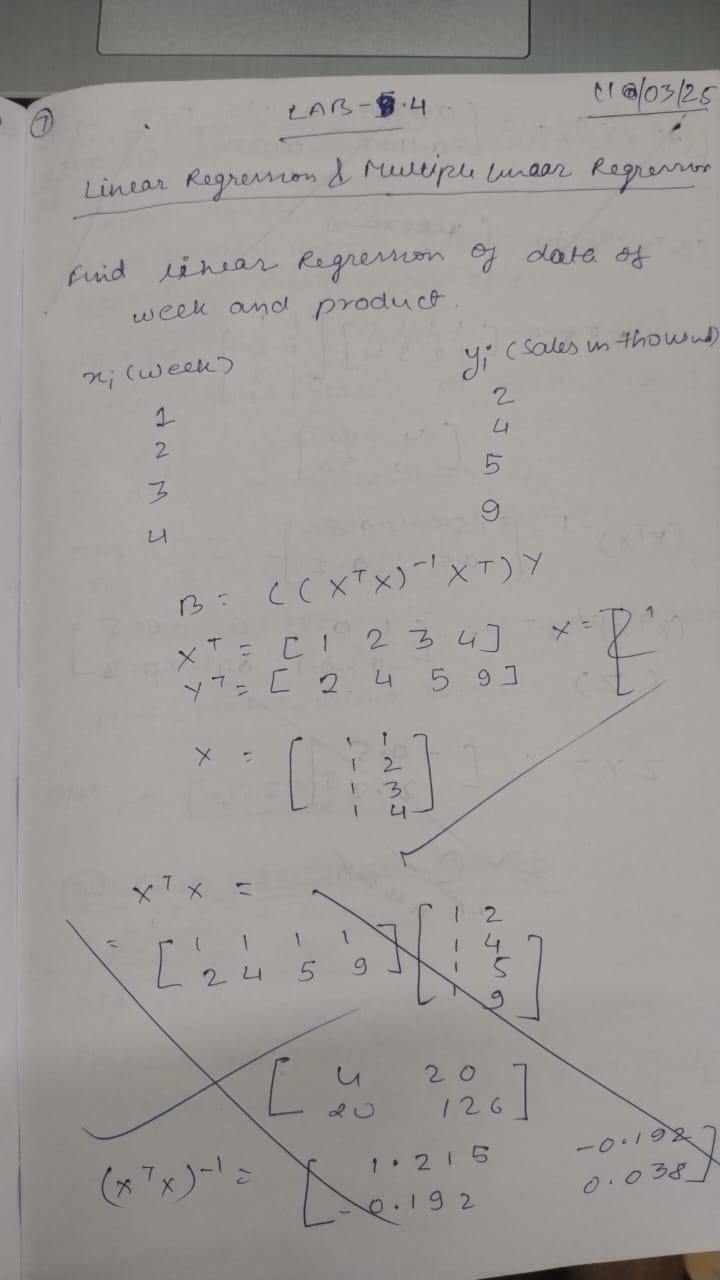 7
LAB-5.4
11/03/25
Linear Regression & Multiple Linear Regression
Find linear Regression of data of
week and product.
xi (week) yi (Sales in thousand)
1 2
2 4
3 5
4 9
B = ((X^T X)^-1 X^T) Y
X^T = [1 2 3 4] X = [1
Y^T = [2 4 5 9]
X = [1 1
1 2
1 3
1 4]
X^T X =
= [1 1 1 1 [1 2
2 4 5 9] 1 4
1 5
1 9]
[4 20
20 126]
(X^T X)^-1 = [1.215 -0.192
-0.192 0.038]